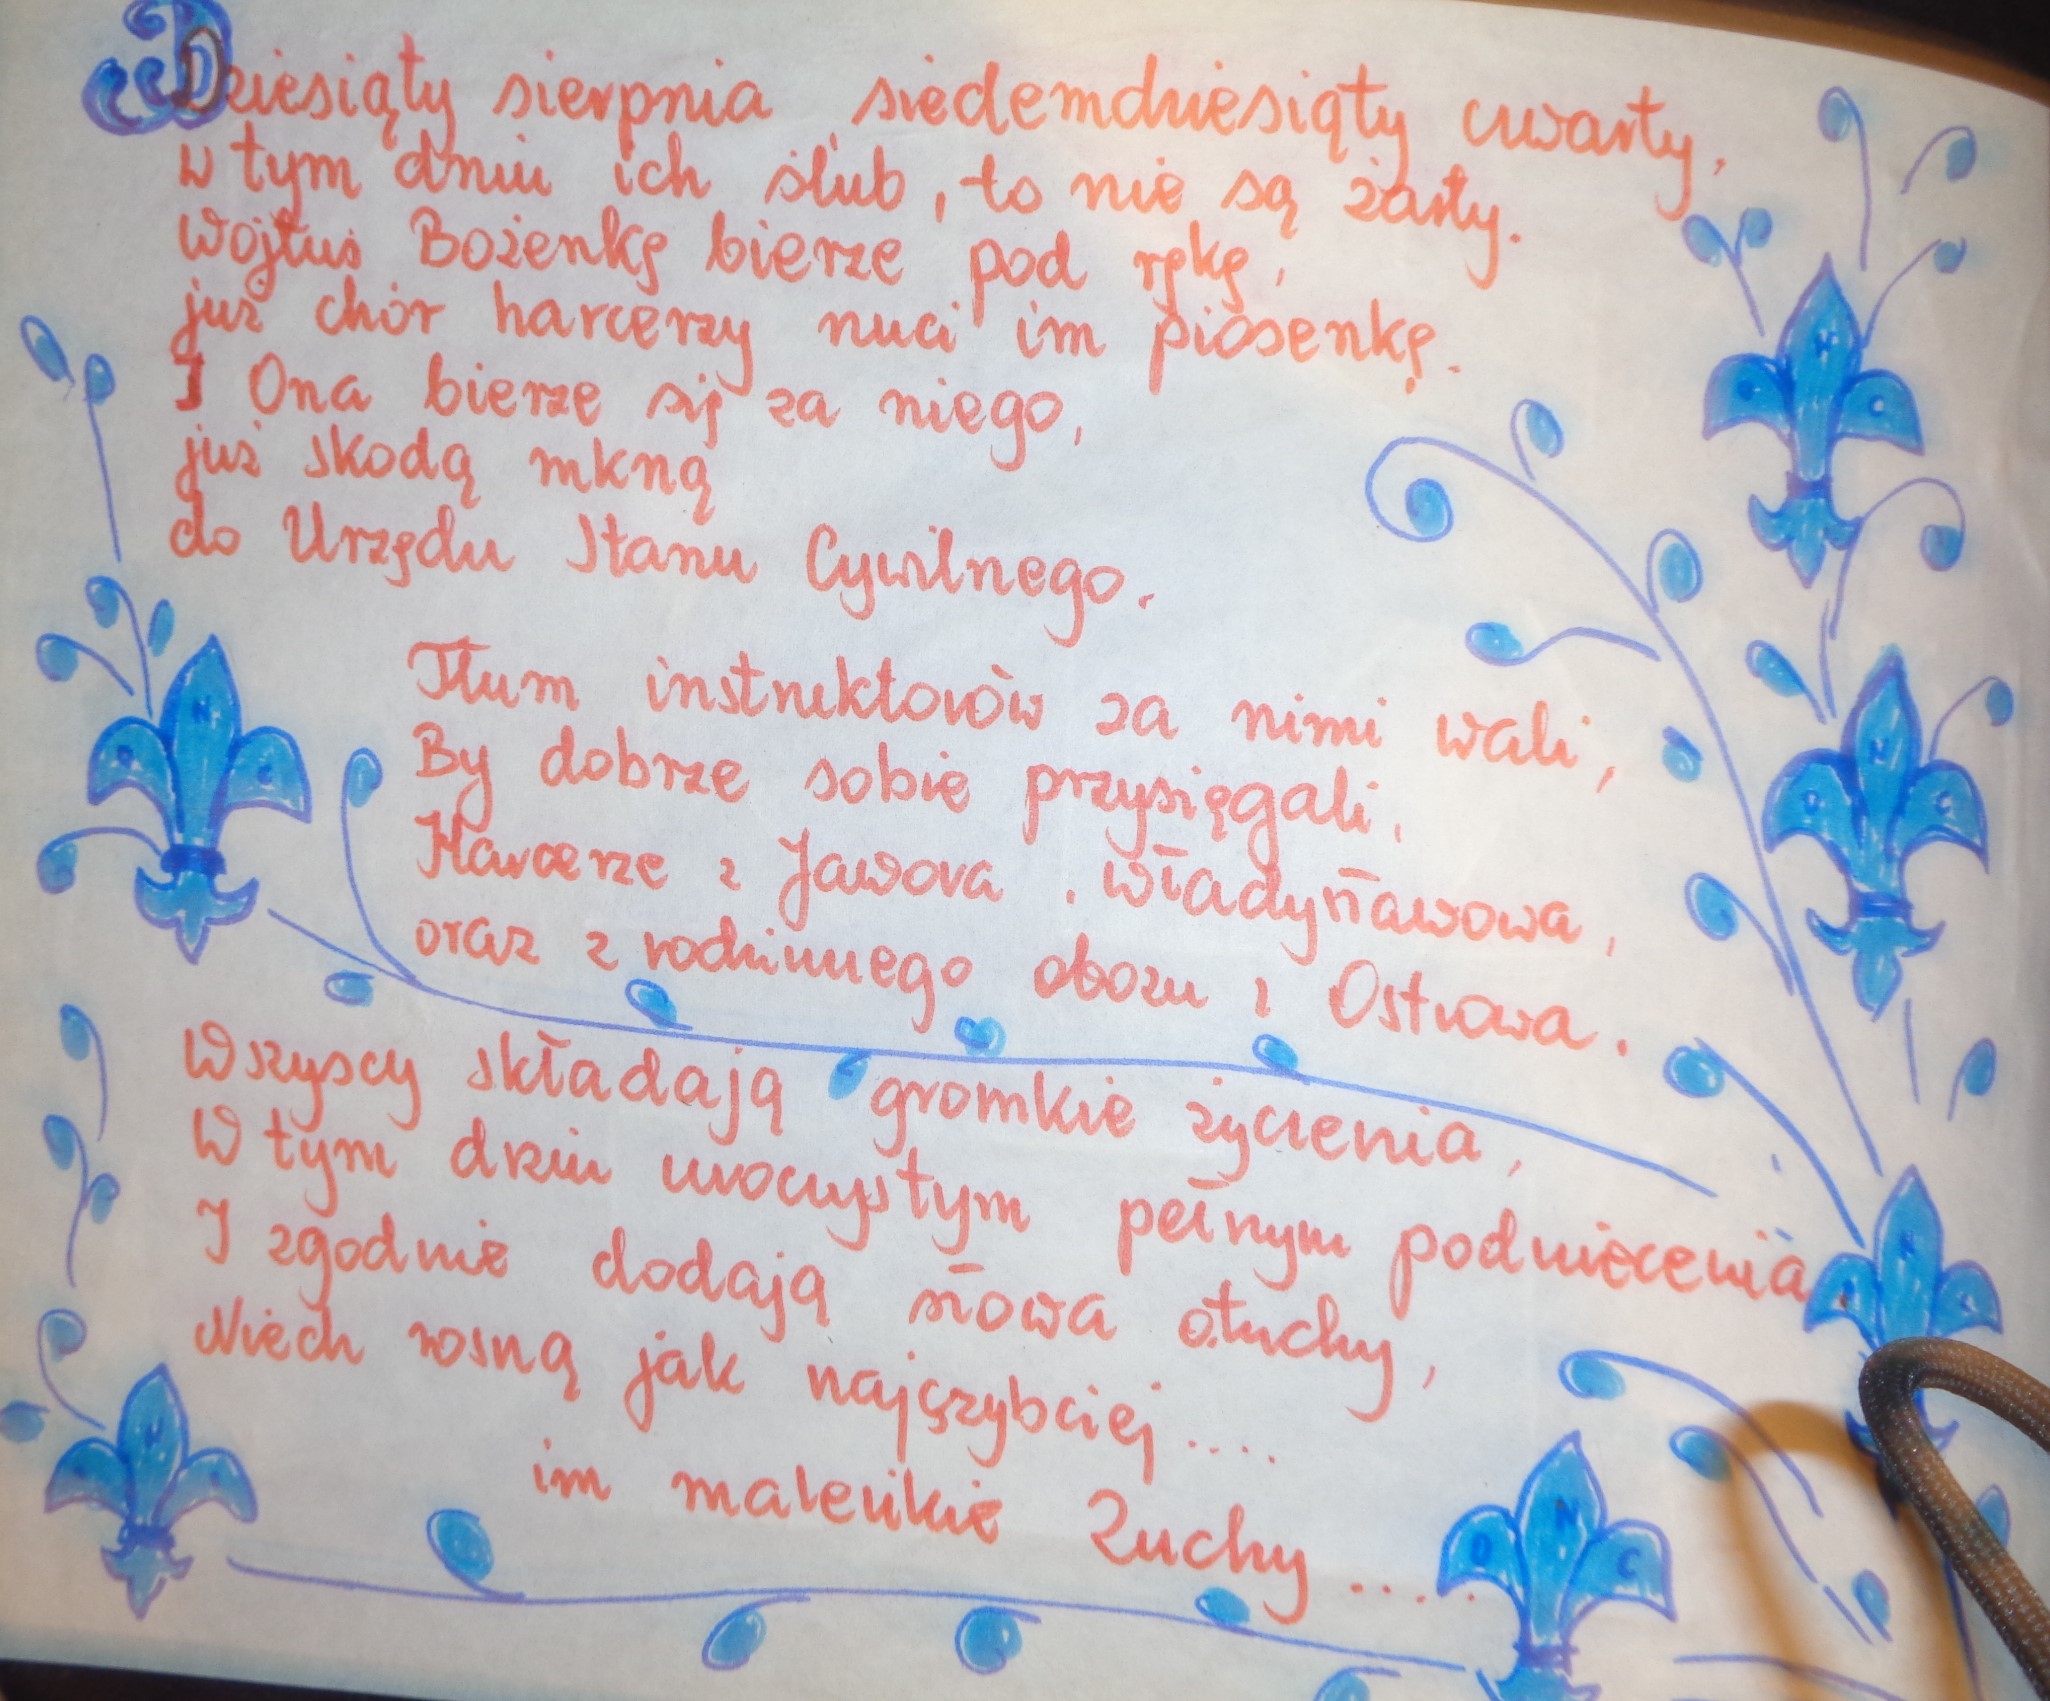 Dziesiąty sierpnia siedemdziesiąty czwarty,
w tym dniu ich ślub, to nie są żarty.
Wojtuś Bożenkę bierze pod rękę,
już chór harcerzy nuci im piosenkę.
I Ona bierze się za niego,
już skodą mkną
do Urzędu Stanu Cywilnego.
Tłum instruktorów za nimi wali,
By dobrze sobie przysięgali,
Harcerze z Jawora, Władysławowa,
oraz z rodzinnego obozu z Ostrowa.
Wszyscy składają gromkie życzenia,
W tym dniu uroczystym pełnym podniecenia,
I zgodnie dodają słowa otuchy,
Niech rosną jak najszybciej ....
im maleńkie Zuchy .....
O N C
O N C
O N C
O N C
O N C
O N C